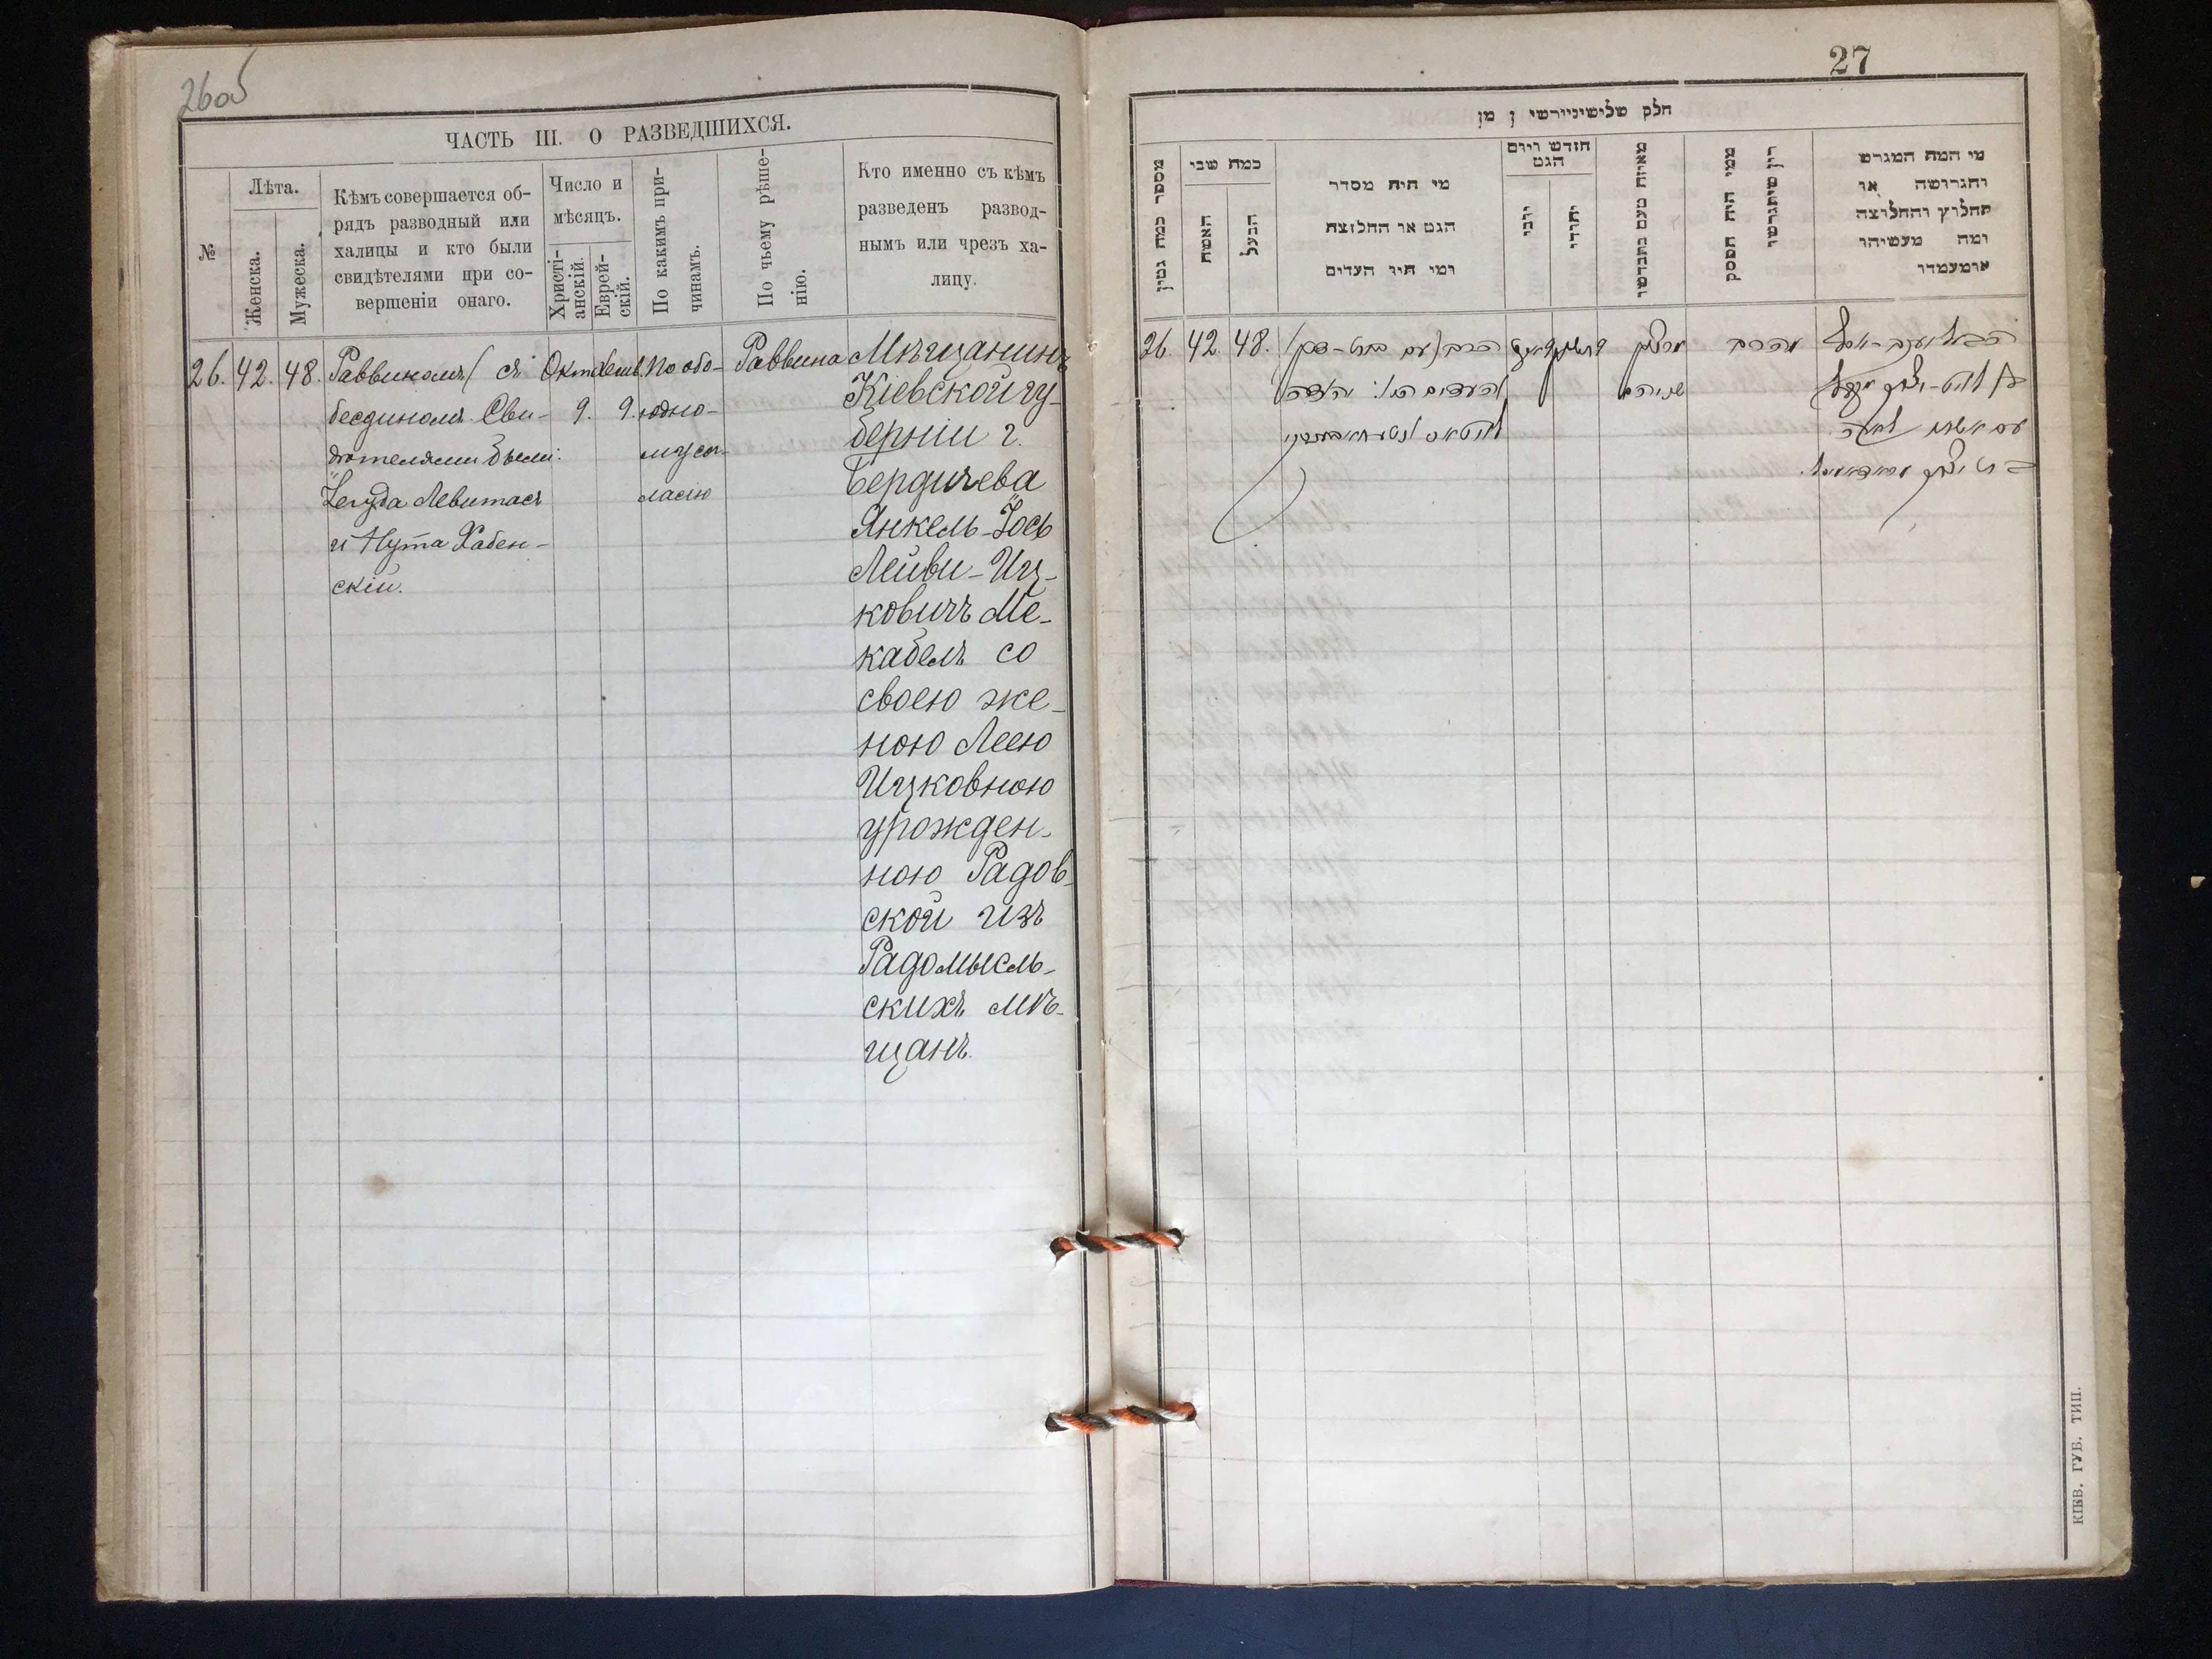 26об
ЧАСТЬ III. О РАЗВЕДШИХСЯ.
№
Лѣта.
Женска.
Мужеска.
Кѣмъ совершается об-
рядъ разводный или
халицы и кто были
свидѣтелями при со-
вершеніи онаго.
Число и
мѣсяцъ.
Христі-
анскій.
Еврей-
скій.
По какимъ при-
чинамъ.
По чьему рѣше-
нію.
Кто именно съ кѣмъ
разведенъ развод-
нымъ или чрезъ ха-
лицу.
26. 42. 48.
Раввиномъ (съ
бесдиномъ. Сви-
дѣтелями были:
Іегуда Левитасъ
и Нута Хабен-
скій.
Окт.
9.
Хешв.
9.
По обо-
юдно-
му сог-
ласію
Раввина
Мѣщанинъ
Кіевской гу-
берніи г.
Бердичева
Янкель-Іось
Лейви-Иц-
ковичъ Ме-
кабелъ со
своею же-
ною Леею
Ицковною
урожден-
ною Радов-
ской изъ
Радомысль-
скихъ мѣ-
щанъ.
27
חלק שלישי
מן
מספר כמה גטין
כמה שני
האשה
הבעל
מי היה מסדר
הגט או החלוצה
ומי היו העדים
חודש ויום
הגט
יוני
יהודי
מאיזה טעם נתגרשו
ממי היה הפסק
דין שיתגרשו
מי המה המגרש
והגרושה או
החלוץ והחלוצה
ומה מעשיהו
ומעמדו
26. 42. 48.
הרב (עם
והעדים היו: יהודה
לעוויטאס
מרצון
שניהם
מהרב
הבעל יעקב-יוסף
בן לוי-יצחק
עם אשתו לאה
בת יצחק
КІЕВ. ГУБ. ТИП.